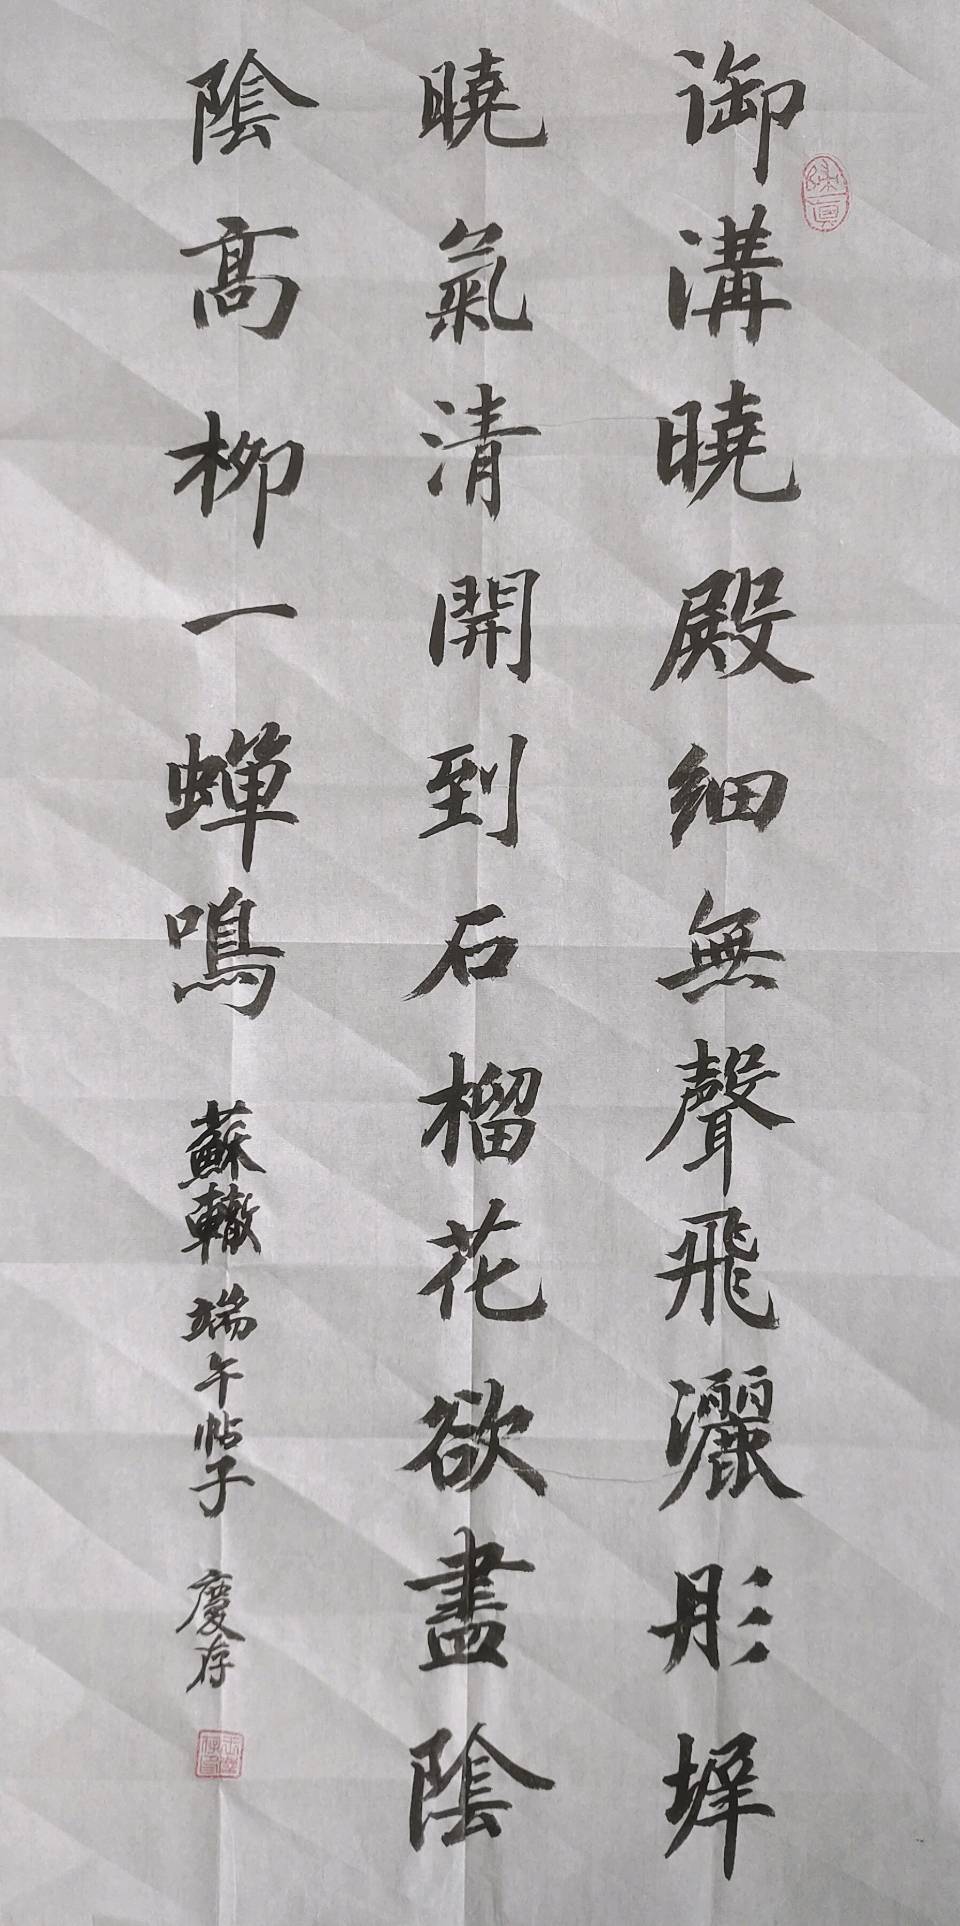 御溝曉殿細無聲飛灑彤墀
曉氣清開到石榴花欲盡陰
陰高柳一蟬鳴
蘇轍端午帖子
慶存